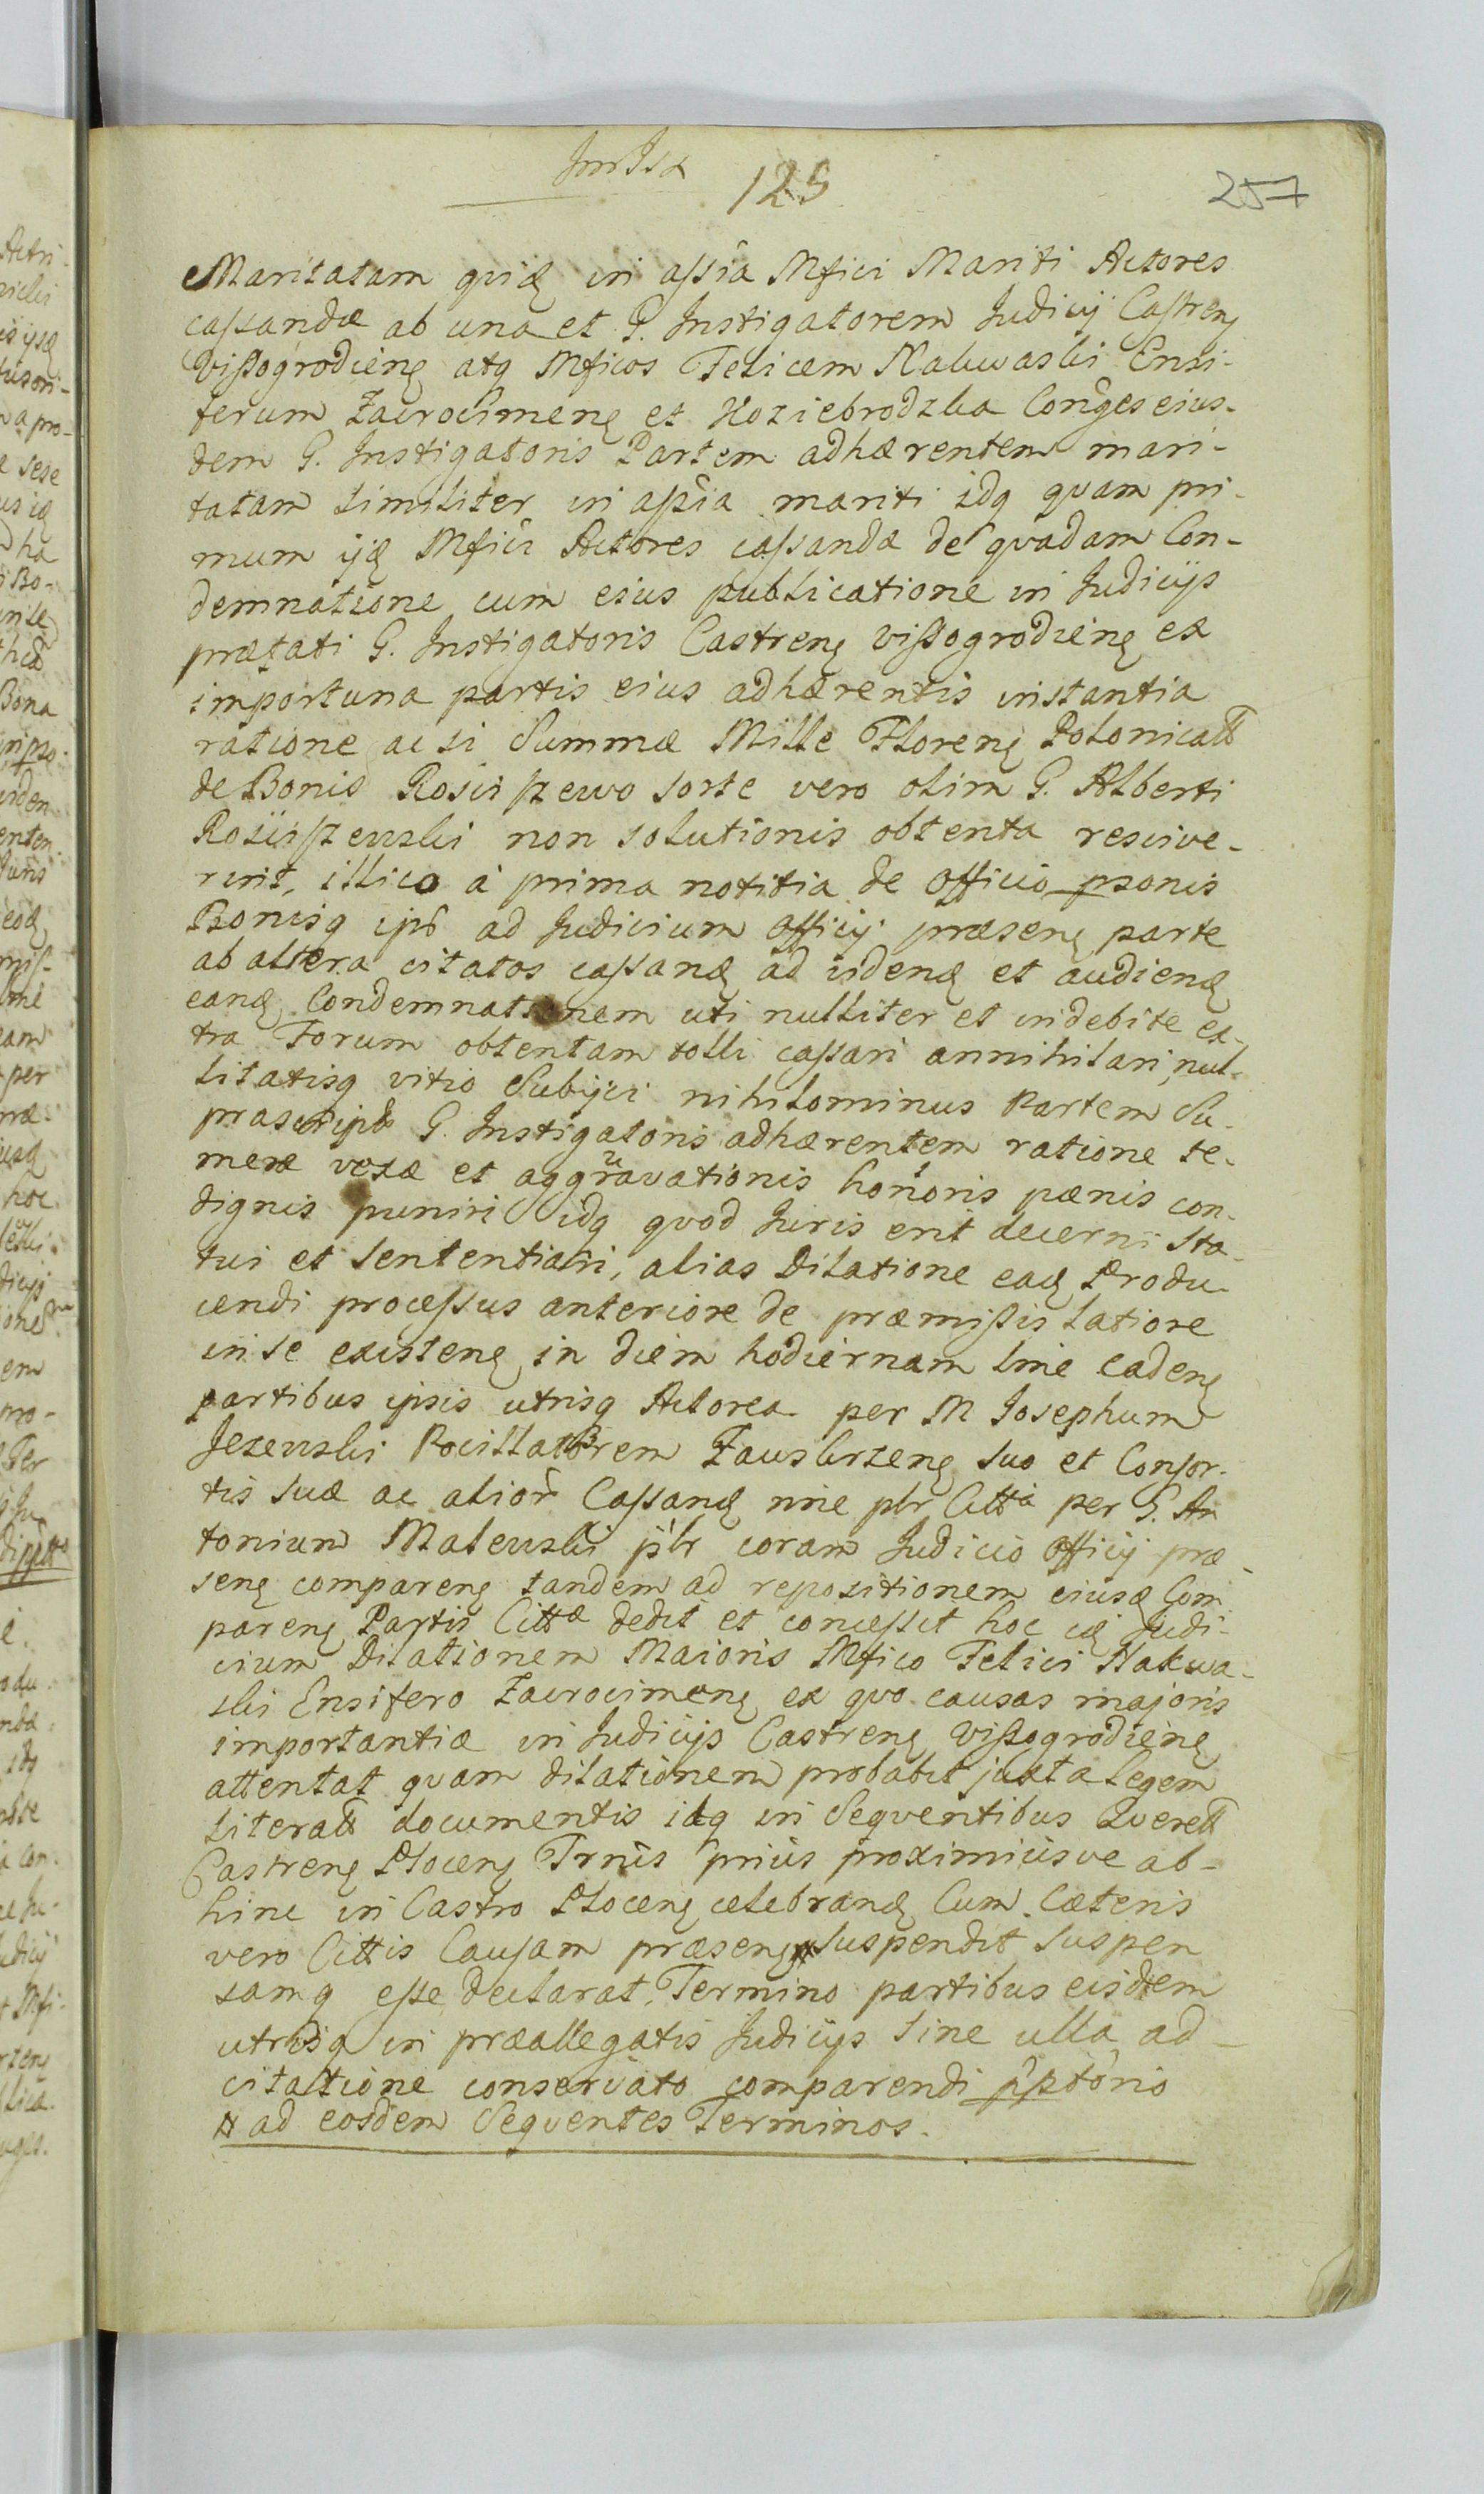 125
257
Maritatam quidę in assîa Mfici Mariti Actores
cassandæ ab una et G. Instigatorem Judicij Castrenę
Vissogrodienę atq Mficos Felicem Nakwaski Ensi-
ferum Zacrocimenę et Koziebrodzka Conĝes eius-
dem G. Instigatoris Partem adhærentem mari-
tatam similiter in assîa mariti idq quam pri-
mum ijdę Mfici Actores cassandæ de quadam Con-
demnatione cum eius publicatione in Judicijs
præfati G. Instigatoris Castrenę vissogrodienę ex
importuna partis eius adhærentis instantia
ratione ac si Summæ Mille Florenę Polonicał
de Bonis Rosciszewo sorte vero olim G. Alberti
Rosciszewski non solutionis obtenta rescive-
rint, illico à prima notitia de Officio psonis
Bonisq ips ad Judicium Officij præsenę parte
ab altera citatos cassandę ad videndę et audiendę
eandę Condemnationem uti nulliter et indebite ex-
tra Forum obtentam tolli cassari annihilari, nul-
litatisq vitio Subijci nihilominus Partem Su-
præscript G. Instigatoris adhærentem ratione te-
meræ vexæ et aggravationis honoris pænis con-
dignis puniri idq quod Juris erit decerni sta-
tui et sententiari, alias Dilatione eadę Produ-
cendi processus anteriore de præmissis latiore
in se existenę in diem hodiernam sine eadenę
partibus ipsis utrisq Actorea per M Josephum
Jezewski Pocillatorem Zawskrzenę suo et Consor-
tis suæ ac alior Cassandę nnie plr Citta per G. An
tonium Malewski plr coram Judicio Officij præ-
senę comparenę tandem ad repositionem eiusdę Com
parenę Partis Cittæ dedit et concessit hoc idę Judi-
cium Dilationem Maioris Mfico Felici Nakwa-
ski Ensifero Zacrocimenę ex quo causas majoris
importantiæ in Judicijs Castrenę Vissogrodienę
attentat quam dilationem probabit juxta legem
literał documentis idq in Sequentibus Querel
Castrenę Plocenę Trnis prius proximiusve ab-
hinc in Castro Plocenę celebrandę Cum Cæteris
vero Cittis Causam præsenę # suspendit suspen
samq esse declarat, Termino partibus eisdem
utrisq in præallegatis Judicijs sine ulla ad-
citatione conservato comparendi pptorio
# ad eosdem Sequentes Terminos.